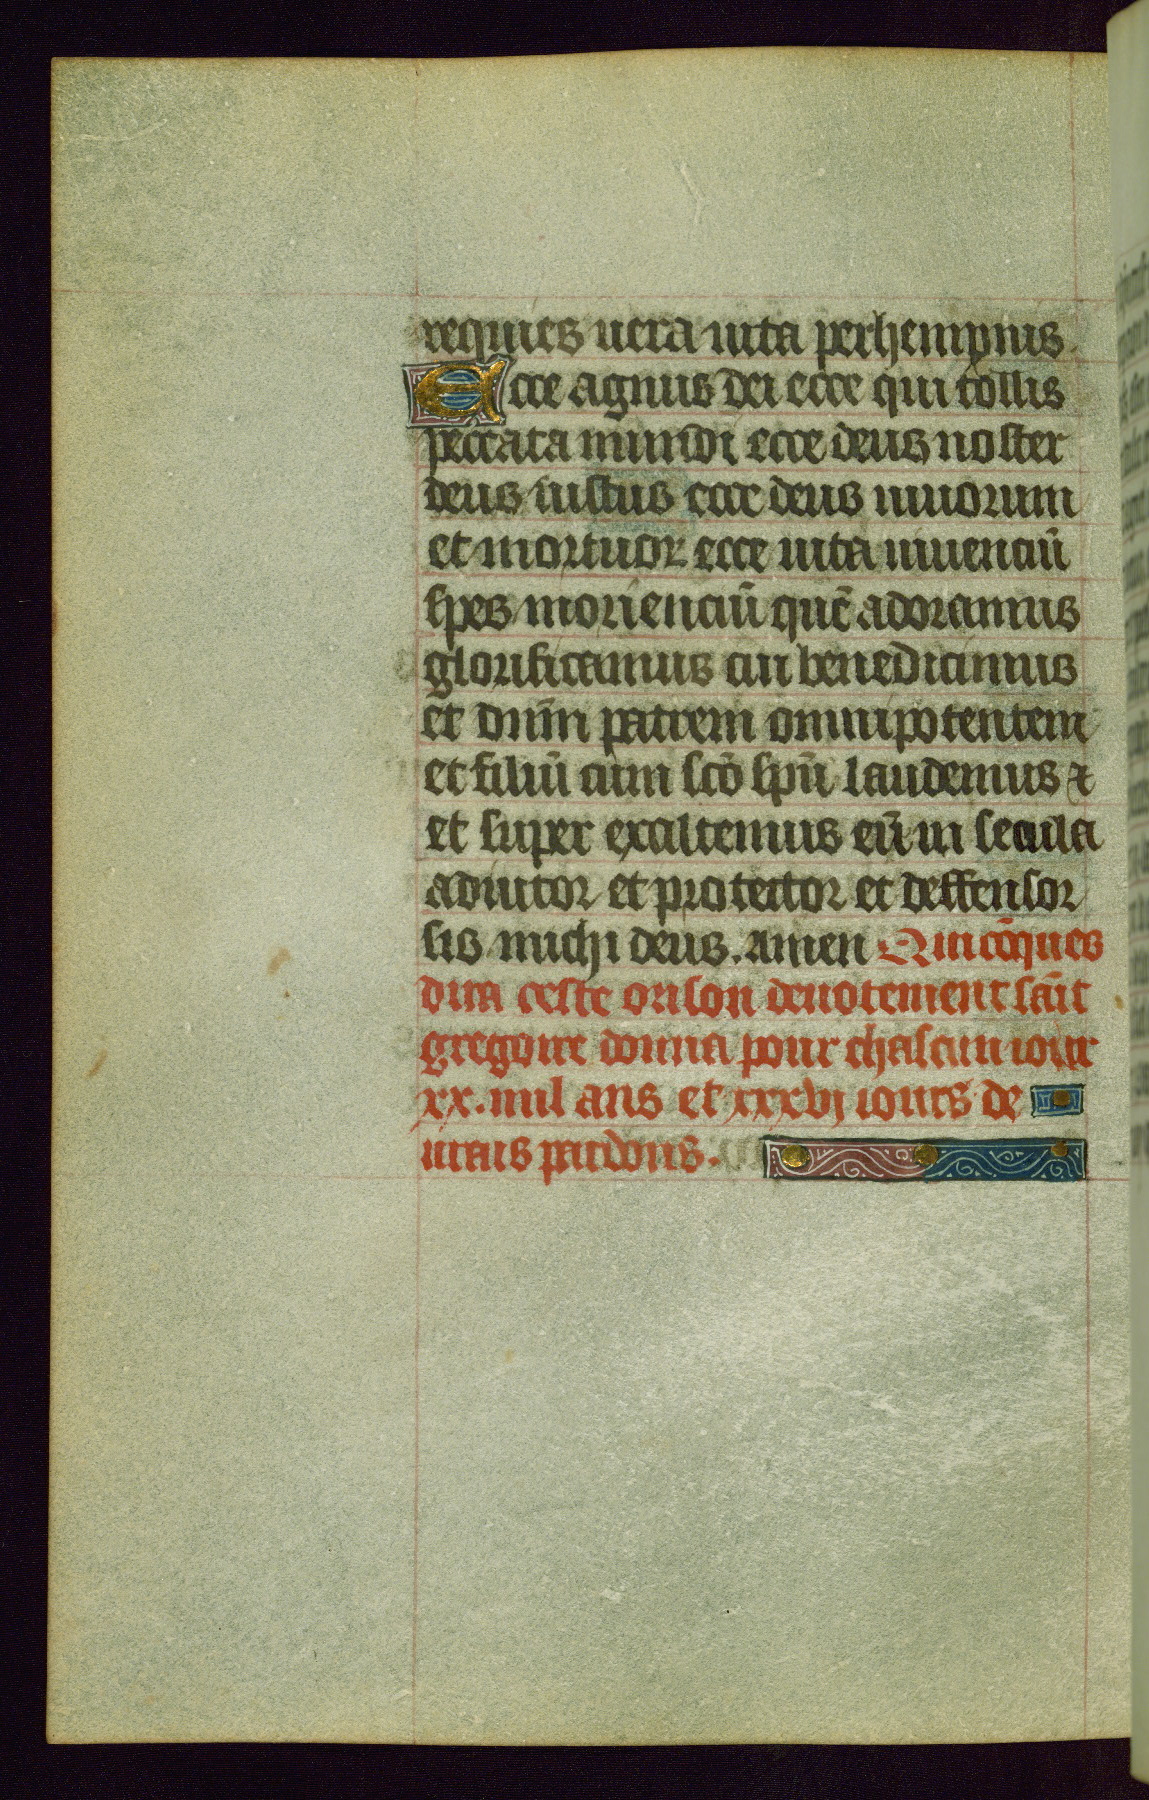 requies uera uita perhempnis.
Ecce agnus dei ecce qui tollis
peccata mundi ecce deus noster
deus iustus ecce deus uiuorum
et mortuor ecce uita uiuenciū
spes morienciū quē adoramus
glorificamus cui benedicimus
et dn̄m patrem omnipotentem
et filiū cum sc̄o sp̄u laudemus ⁊
et super exaltemus eū in secula
adiutor et protector et deffensor
sis michi deus. Amen Quicōques
dira ceste orison deuotement sāīt
gregoire donna pour chascun iour
xx. mil ans et xxxvj iours de
urais pardons.